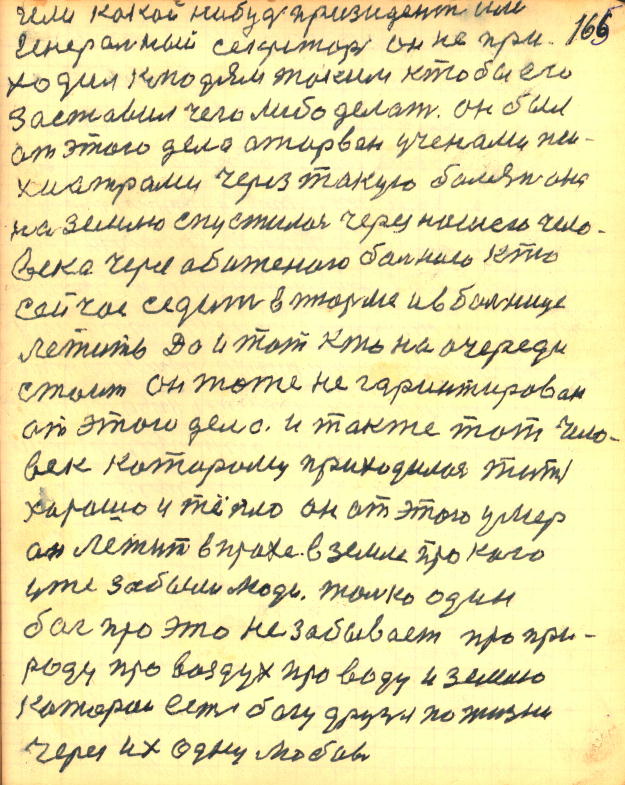 или какой нибуд призидент или
Генералный секретор он не при- 166
ходил клюдям таким ктобы его
Заставил чего либо делат. он был
от этого дела аторван учеными пи-
хиатрами через такую болезн она
на землю спустилас через нашего чело-
века чере обиженого болного кто
сейчас седит в тюрме и в болнице
лежить Да и тот кто на очереди
стоит он тоже не гаринтирован
от этого дела. и также тот чело-
век которому приходилоя жить
харашо и тёпло он от этого умер
он лежит в прахе. в земле про кого
уже забыли люди. толко один
бог про это не забывает про при-
роду про воздух про воду и землю
которые есть богу друзя по жизни
через их одну любов